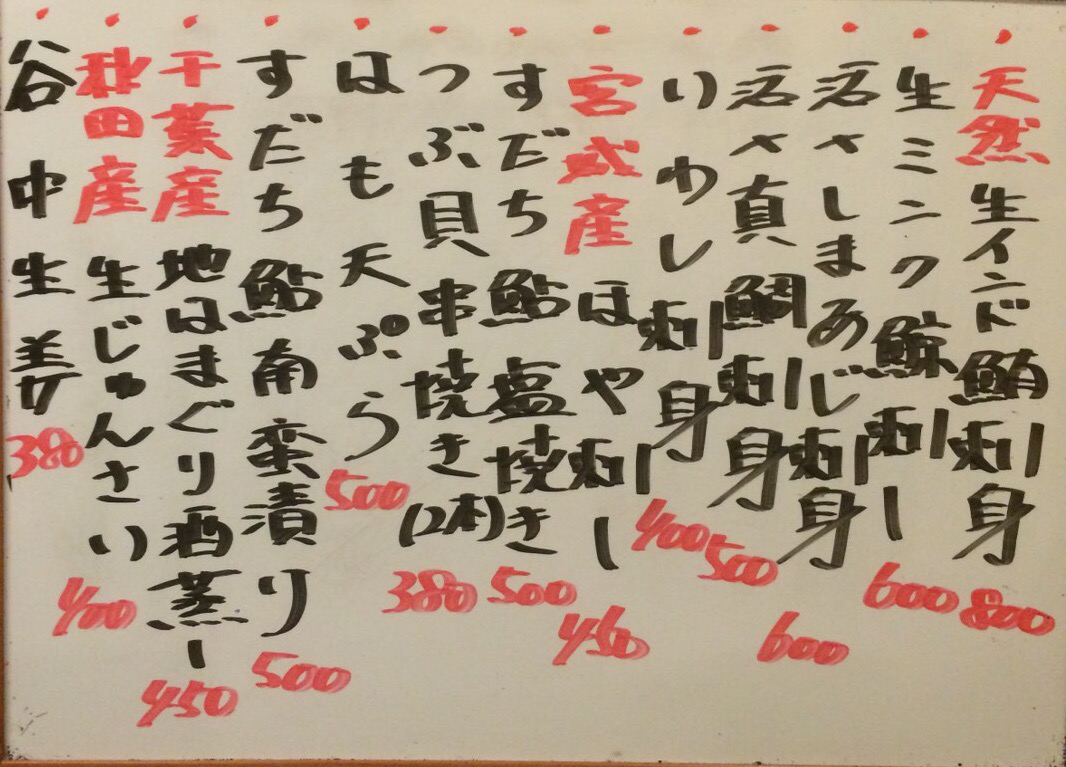 天然 生インド鮪刺身 800
生ミンク鯨刺し 600
活〆しまあじ刺身 600
活〆真鯛刺身 500
いわし刺身 400
宮城産 ほや刺し 450
すだち鮎塩焼き 500
つぶ貝串焼き(2本) 380
はも天ぷら 500
すだち鮎南蛮漬け 500
千葉産 地はまぐり酒蒸し 450
秋田産 生じゅんさい 400
谷中生姜 380